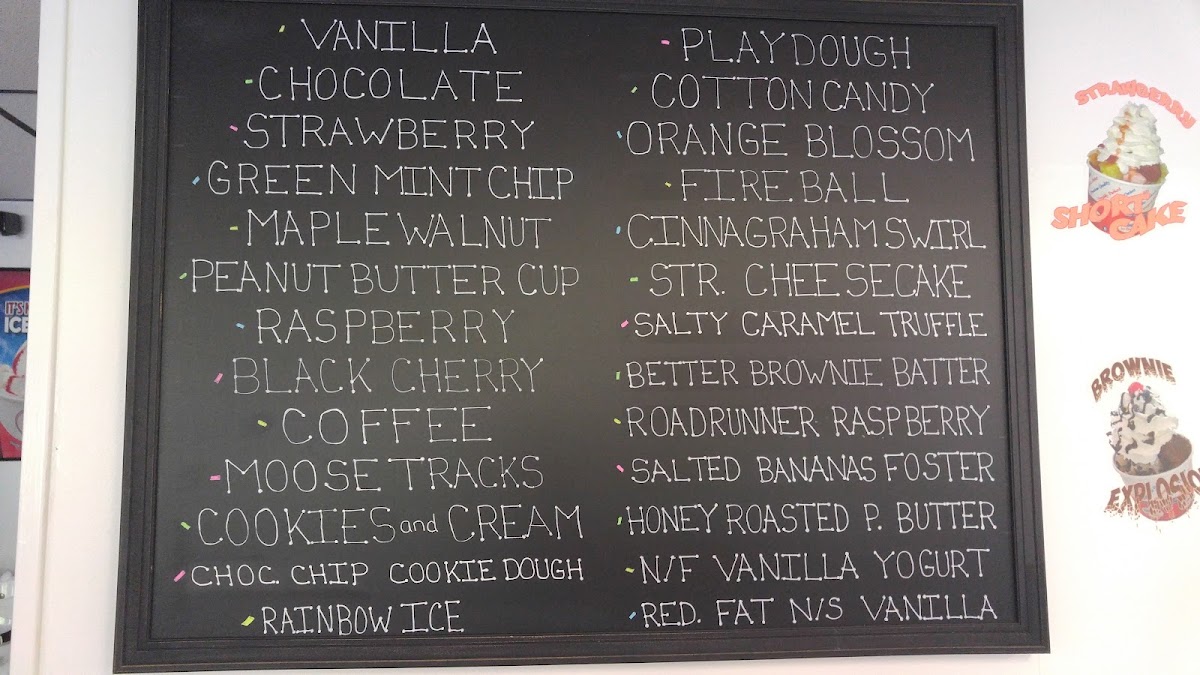 VANILLA
CHOCOLATE
STRAWBERRY
GREEN MINT CHIP
MAPLE WALNUT
PEANUT BUTTER CUP
RASPBERRY
BLACK CHERRY
COFFEE
MOOSE TRACKS
COOKIES and CREAM
CHOC. CHIP COOKIE DOUGH
RAINBOW ICE
PLAYDOUGH
COTTON CANDY
ORANGE BLOSSOM
FIREBALL
CINNAGRAHAM SWIRL
STR. CHEESECAKE
SALTY CARAMEL TRUFFLE
BETTER BROWNIE BATTER
ROADRUNNER RASPBERRY
SALTED BANANAS FOSTER
HONEY ROASTED P. BUTTER
N/F VANILLA YOGURT
RED. FAT N/S VANILLA
STRAWBERRY
SHORT
CAKE
BROWNIE
EXPLOSIO
IT'S
ICE